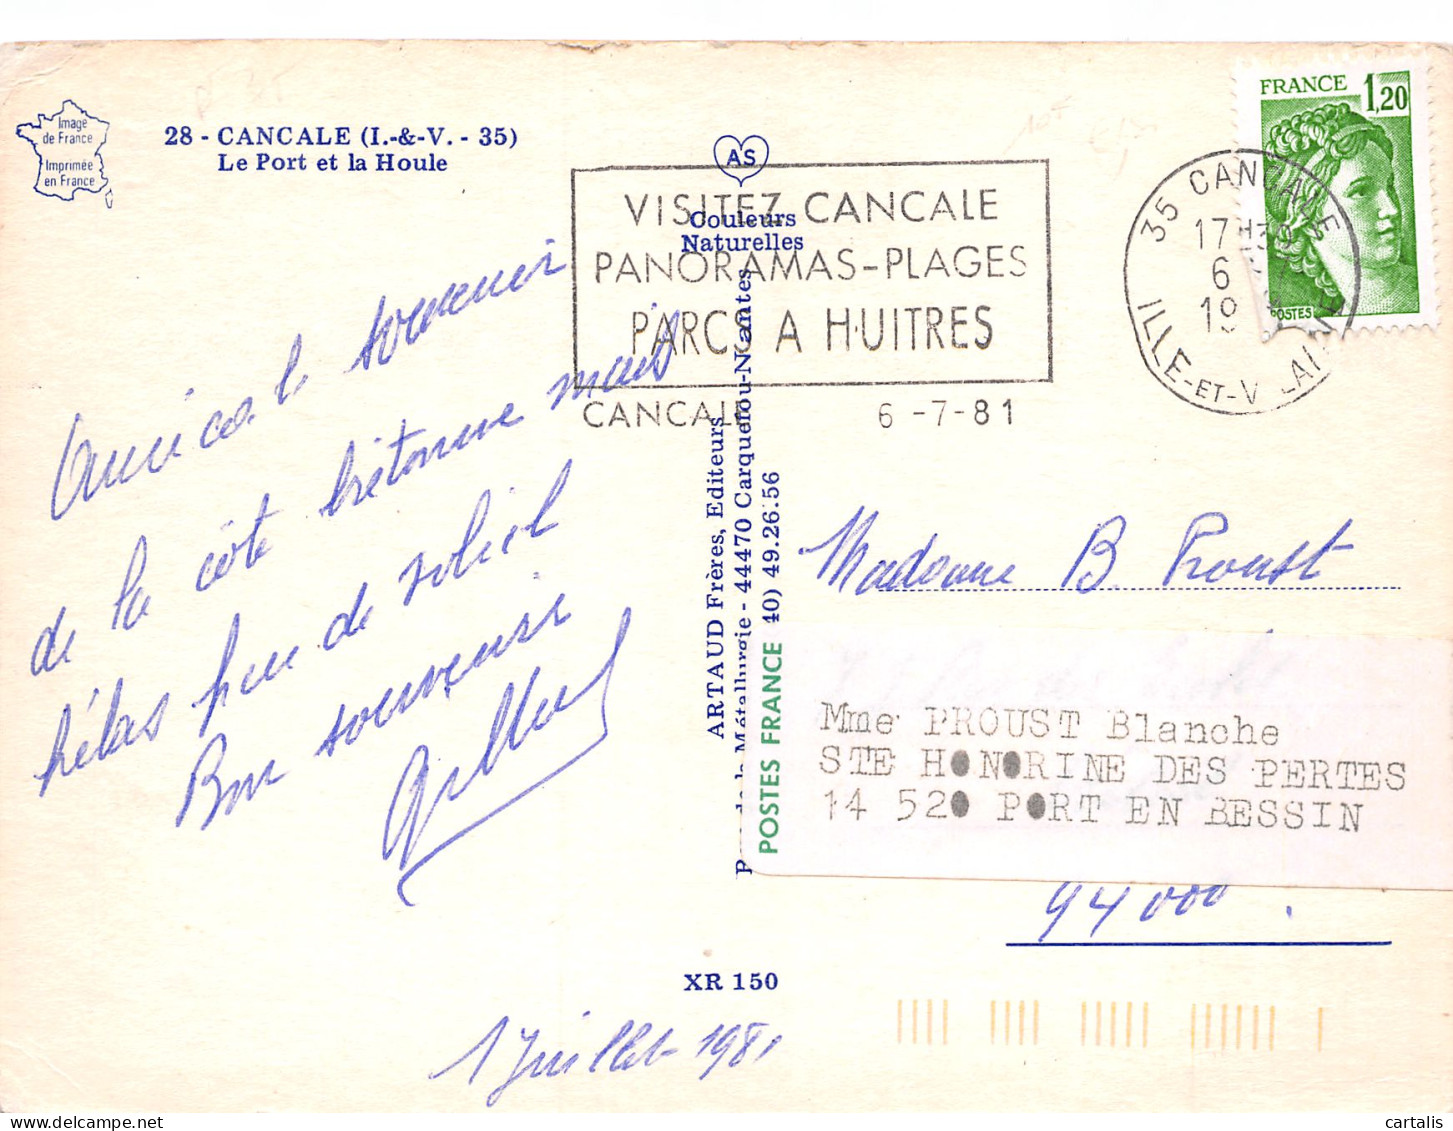 Image
de France
Imprimée
en France
28 - CANCALE (I.-&-V. - 35)
Le Port et la Houle
AS
Couleurs
Naturelles
VISITEZ CANCALE
PANORAMAS-PLAGES
PARCS A HUITRES
CANCALE 6 -7-81
FRANCE 1,20
POSTES
35 CANCALE
17H30
6
19
ILLE-ET-VILAINE
Amical souvenir
de la côte bretonne mais
hélas peu de soleil
Bon souvenir
1 Juillet 1981
ARTAUD Frères, Editeurs
de la Métallurgie - 44470 Carquefou-Nantes
40) 49.26.56
POSTES FRANCE
Madame B. Proust
Mme PROUST Blanche
STE HONORINE DES PERTES
14 520 PORT EN BESSIN
94000.
XR 150
cartalis